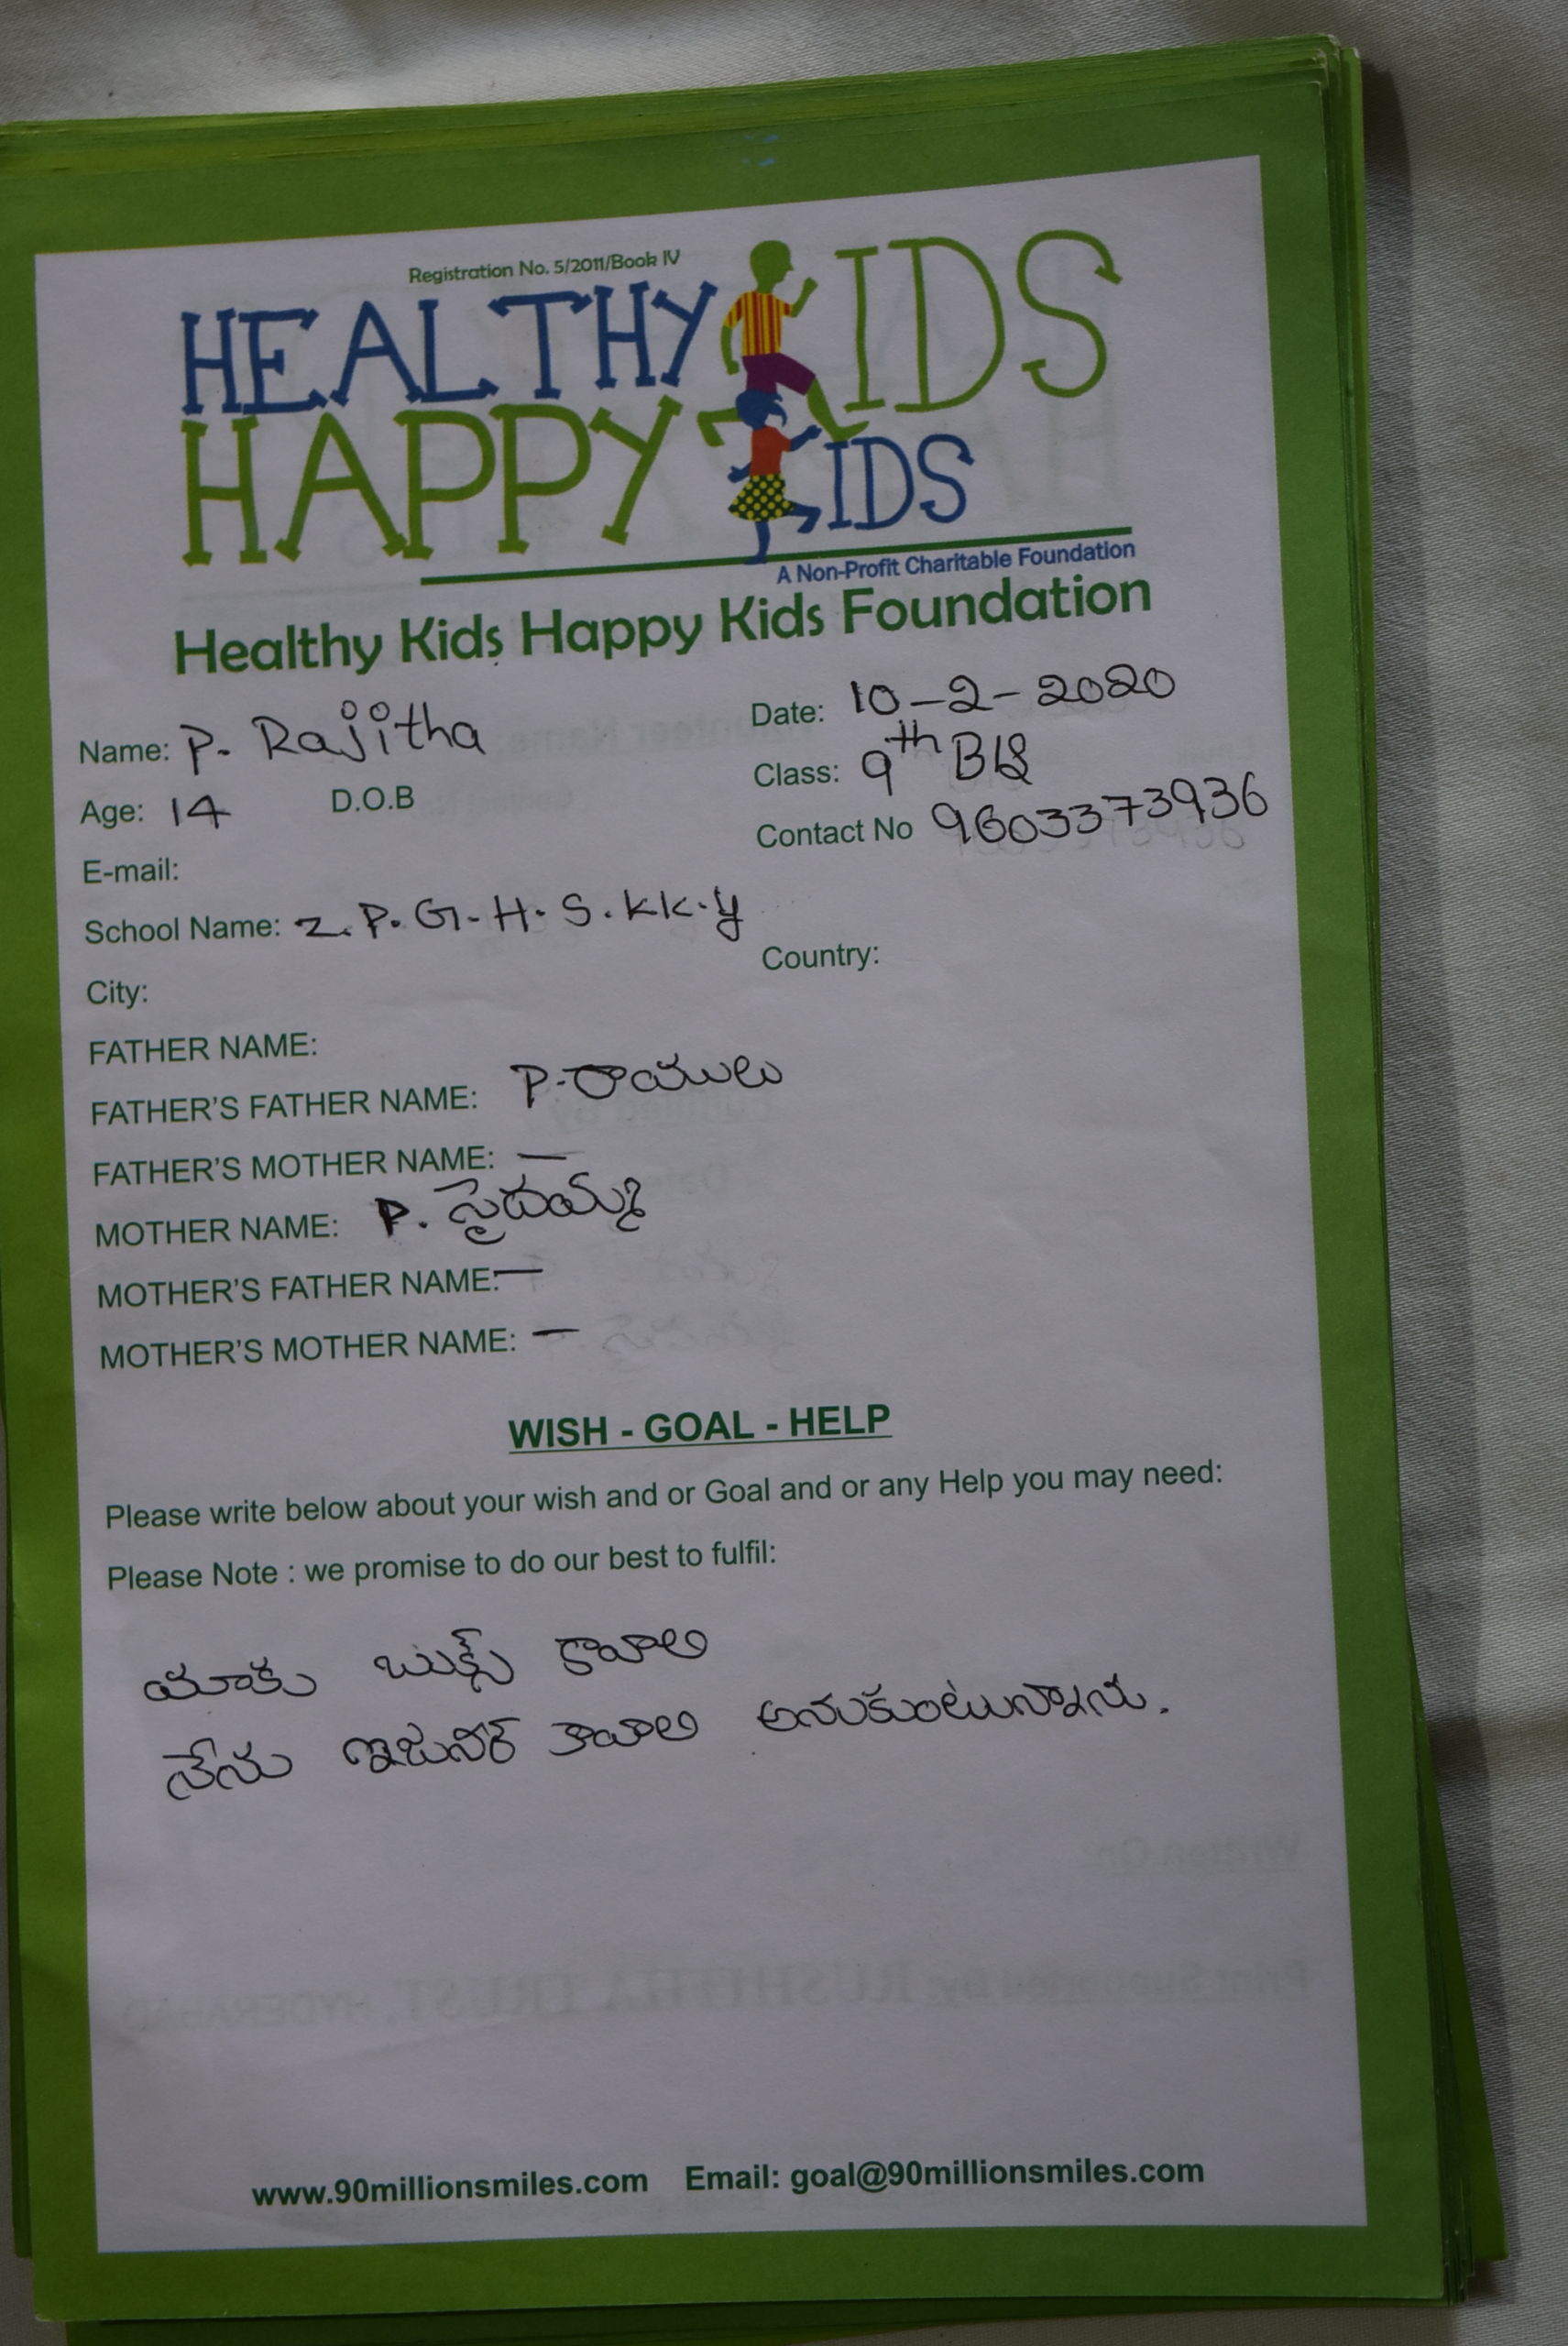 Registration No. 5/2011/Book IV
HEALTHY KIDS
HAPPY KIDS
A Non-Profit Charitable Foundation
Healthy Kids Happy Kids Foundation
Name: P. Rajitha Date: 10-2-2020
Age: 14 D.O.B Class: 9th B
E-mail: Contact No 9603373936
School Name: Z.P.G.H.S.KK.y
City: Country:
FATHER NAME:
FATHER'S FATHER NAME: P. రాములు
FATHER'S MOTHER NAME: —
MOTHER NAME: P. సైదమ్మ
MOTHER'S FATHER NAME: —
MOTHER'S MOTHER NAME: —
WISH - GOAL - HELP
Please write below about your wish and or Goal and or any Help you may need:
Please Note : we promise to do our best to fulfil:
మాకు బుక్స్ కావాలి
నేను ఇజునీర్ కావాలి అనుకుంటున్నాను.
www.90millionsmiles.com Email: goal@90millionsmiles.com